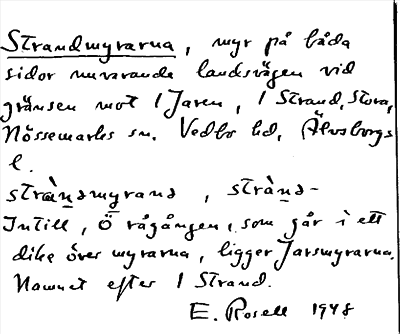 Strandmyrarna, myr på båda
sidor nuvarande landsvägen vid
gränsen mot 1 Jaren, 1 Strand, Stora,
Nössemarks sn. Vedbo hd, Älvsborgs
l.
stràn̲dmyrana, stràn̲d-
Intill, Ö rågången, som går i ett
dike över myrarna, ligger Jarsmyrarna.
Namnet efter 1 Strand.
E. Rosell 1948